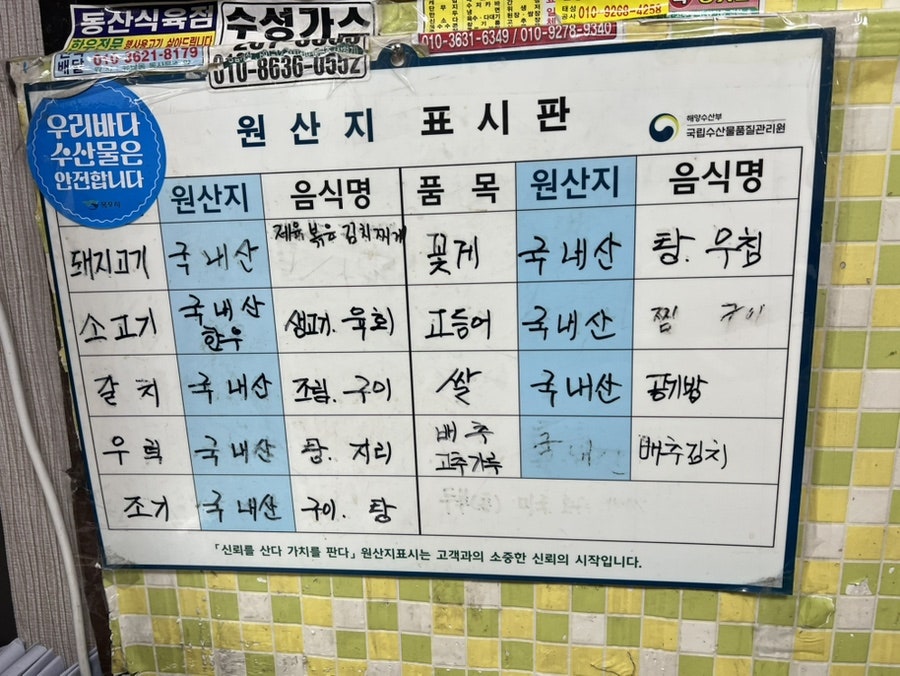 동잔식육점
한우전문
배달
010-3621-8179
수성가스
010-8636-0552
010-3631-6349 / 010-9278-9340
010-9268-4258
우리바다
수산물은
안전합니다
원산지 표시판
해양수산부
국립수산물품질관리원
원산지 음식명 품목 원산지 음식명
돼지고기 국내산 제육볶음 김치찌개 꽃게 국내산 탕. 무침
소고기 국내산 한우 생고기. 육회 고등어 국내산 찜 구이
갈치 국내산 조림. 구이 쌀 국내산 공기밥
우럭 국내산 탕. 지리 배추 고추가루 국내산 배추김치
조기 국내산 구이. 탕
「신뢰를 산다 가치를 판다」 원산지표시는 고객과의 소중한 신뢰의 시작입니다.